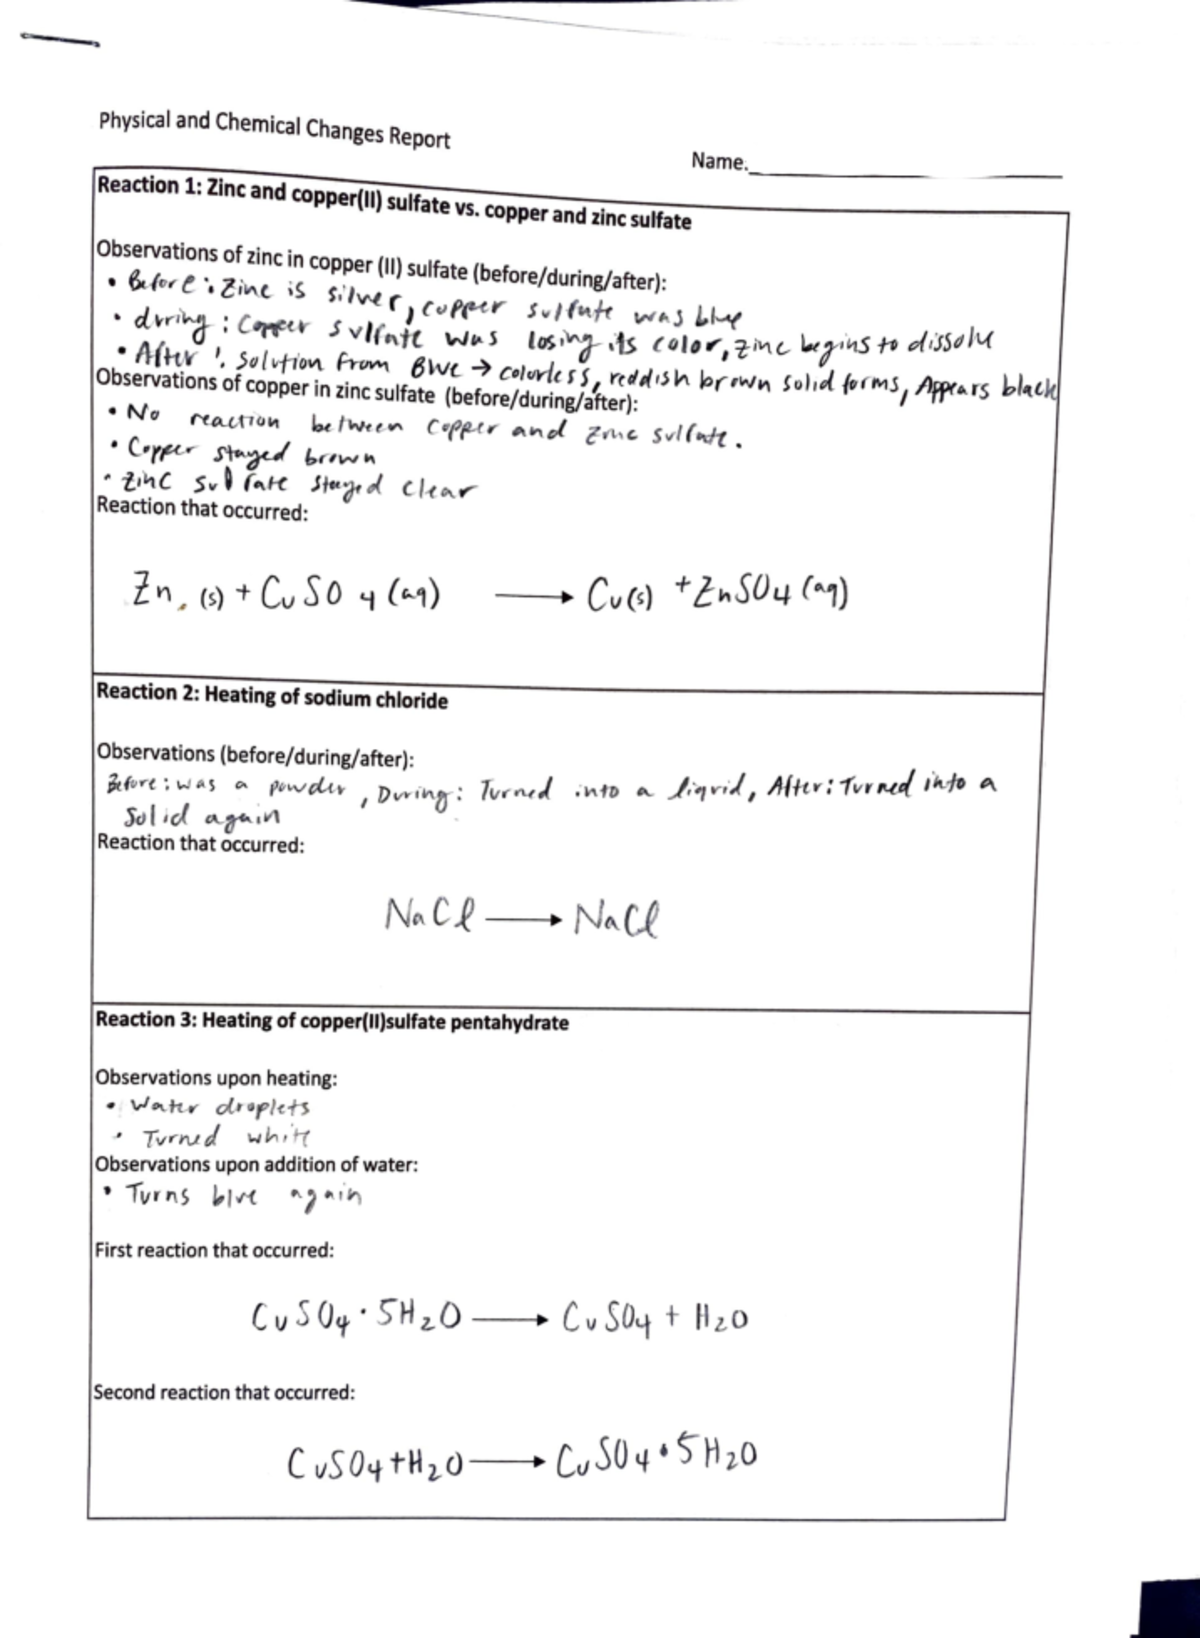 Physical and Chemical Changes Report
Name.
Reaction 1: Zinc and copper(II) sulfate vs. copper and zinc sulfate
Observations of zinc in copper (II) sulfate (before/during/after):
• Before: Zinc is silver, copper sulfate was blue
• during: Copper sulfate was losing its color, zinc begins to dissolve
• After: Solution from Blue → colorless, reddish brown solid forms, Appears black
Observations of copper in zinc sulfate (before/during/after):
• No reaction between Copper and Zinc sulfate.
• Copper stayed brown
• Zinc sulfate stayed clear
Reaction that occurred:
Zn (s) + CuSO4 (aq) → Cu(s) + ZnSO4 (aq)
Reaction 2: Heating of sodium chloride
Observations (before/during/after):
Before: was a powder, During: Turned into a liquid, After: Turned into a
Solid again
Reaction that occurred:
NaCl → NaCl
Reaction 3: Heating of copper(II)sulfate pentahydrate
Observations upon heating:
• Water droplets
• Turned white
Observations upon addition of water:
• Turns blue again
First reaction that occurred:
CuSO4 · 5H2O → CuSO4 + H2O
Second reaction that occurred:
CuSO4 + H2O → CuSO4 · 5H2O